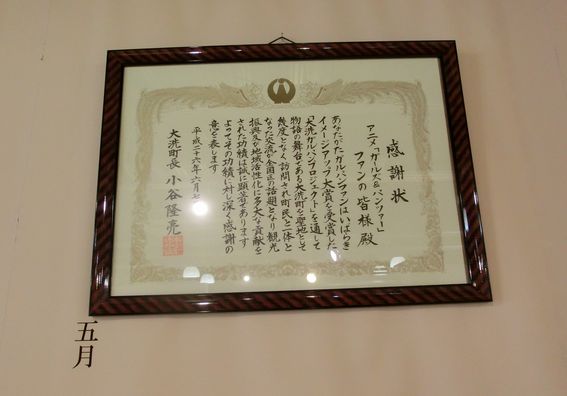 感謝状
アニメ「ガールズ&パンツァー」
ファンの皆様殿
あなたがたガルパンファンはいばらき
イメージアップ大賞を受賞した
「大洗ガルパンプロジェクト」を通して
物語の舞台である大洗町を聖地として
幾度となく訪問され町民と一体と
なった交流が全国区の話題となり観光
振興及び地域活性化に多大な貢献を
された功績は誠に顕著であります
よってその功績に対し深く感謝の
意を表します
平成二十六年六月七日
大洗町長 小谷隆亮
五月